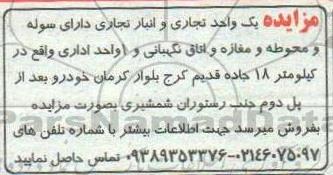 مزایده یک واحد تجاری و انبار تجاری دارای سوله
و محوطه و مغازه و اتاق نگهبانی و (واحد اداری واقع در
کیلومتر ۱۸ جاده قدیم کرج بلوار کرمان خودرو بعد از
پل دوم جنب رستوران شمشیری بصورت مزایده
بفروش میرسد جهت اطلاعات بیشتر با شماره تلفن های
۰۲۱۴۶۰۷۵۰۹۷-۰۹۳۸۹۳۵۳۳۷۶ تماس حاصل نمایید
ParsNamadData